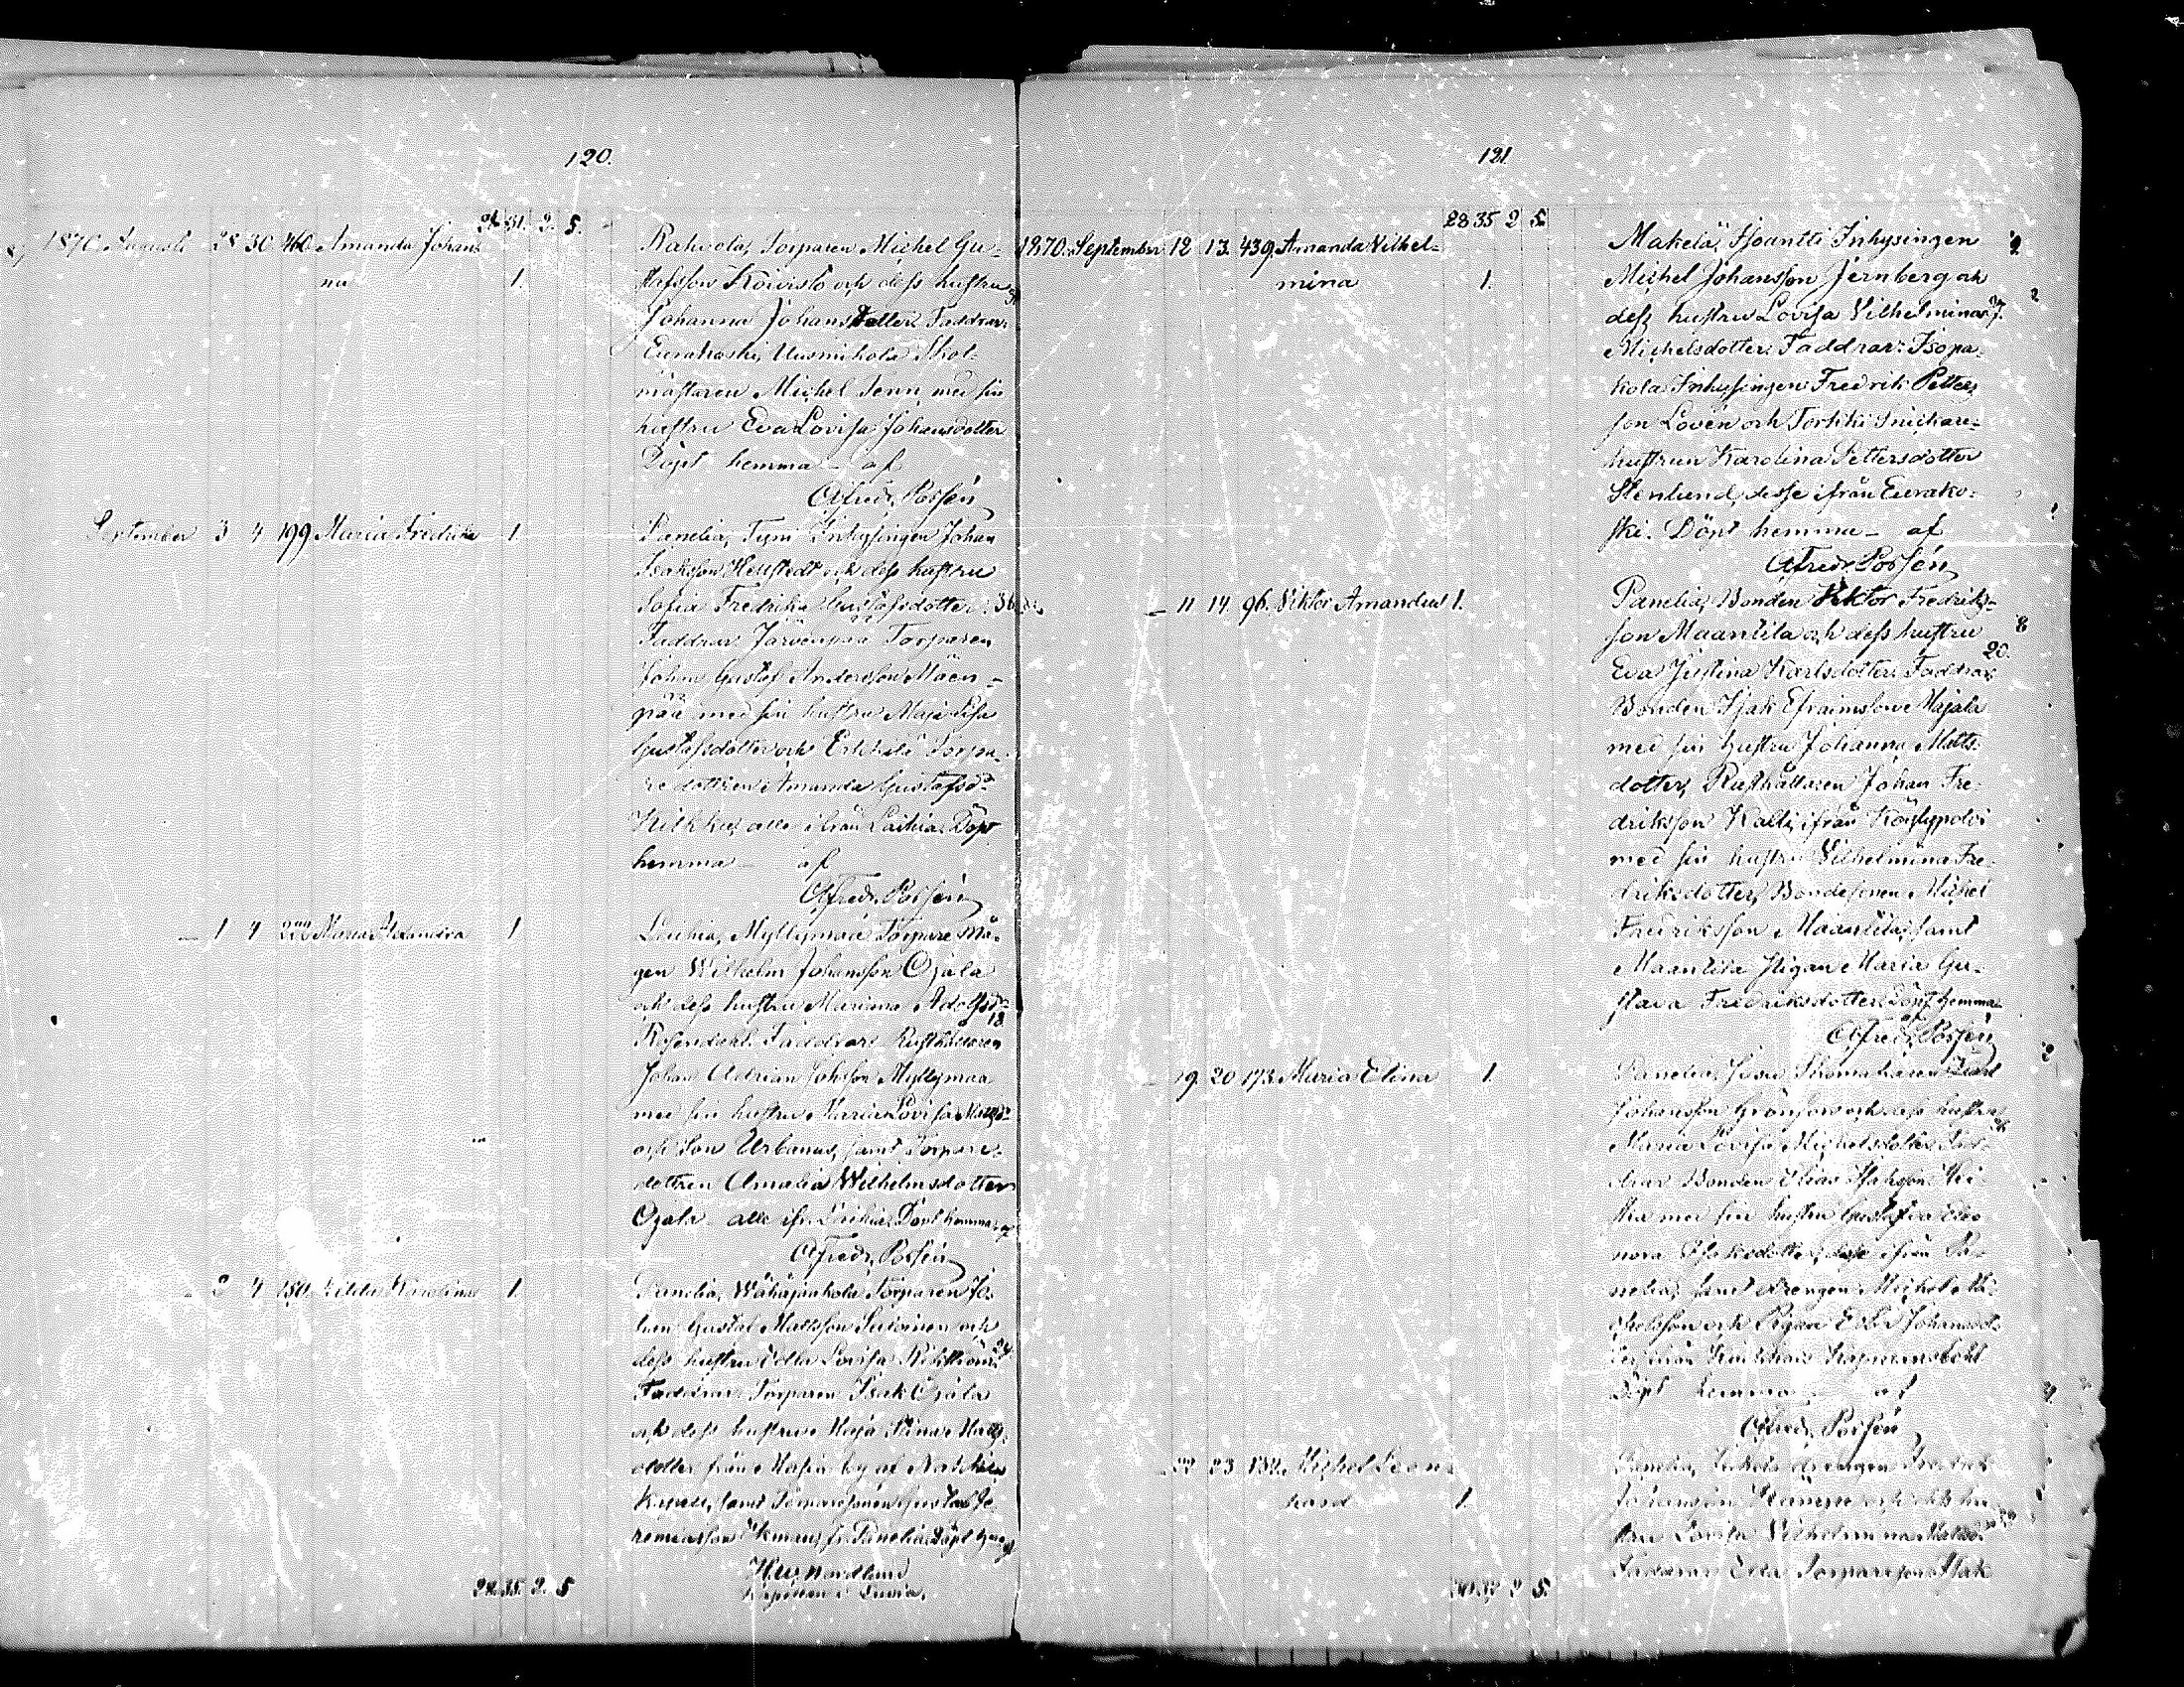 120.
28. 31. 2. 5.
1870. Augusti 28 30 460 Amanda Johan-
na 1.
Rahvola, Torparen Michel Gu-
stafsson Koivisto och dess hustru
Johanna Johansdotter. Faddrar:
Eurakoski, Uusmikola Skol-
mästaren Michel Tenn med sin
hustru Eva Lovisa Johansdotter
Döpt hemma – af
Alfred Porsén
September 3 4 199 Maria Fredrika 1.
Panelia, Inhysingen Johan
Isaksson och dess hustru
Sofia Fredrika Gustafsdotter. 36
Faddrar Järvenpää Torparen
Johan Gustaf Andersson Mäen-
pää med sin hustru Maja Lisa
Gustafsdotter och Erkkilä Torpa-
re dottren Amanda Gustafsd:
alla ifrån Laihia. Döpt
hemma – af
Alfred Porsén
— 1 4 Maria Alexandra 1.
Myllymaa Torpare må-
gen Wilhelm Johansson Ojala
och dess hustru Mariana Adolfsd:
18
Rosendahl. Faddrar: Rusthållaren
Johan Adrian Johsson Myllymaa
med sin hustru Maria Lovisa Mattsd:
och Son Urbanus, samt Torpare-
dottren Amalia Wilhelmsdotter
Ojala alla ifr. Döpt hemma af
Alfred Porsén
— 2 4 180. Hilda Karolina 1.
Panelia, Wähäjaakola Torparen Jo-
han Gustaf Mattsson Suominen och
dess hustru Lovisa 24
Faddrar: Torparen Isak Ojala
och dess hustru Maja Stina Matts-
dotter från by af Nakkila
Kapell, samt Gustaf Je-
remiasson Ekman, fr. Panelia. Döpt hemma af
H. W. Nordlund
Kapellan i Luvia.
28. 35. 2. 5

121.
28 35 2 5.
1870. September 12 13. 439. Amanda Vilhel-
mina 1.
Makelä, Inhysingen
Michel Johansson Jernberg och
dess hustru Lovisa Vilhelmina 37.
Michelsdotter. Faddrar: Isopa-
kola Inhysingen Fredrik Petters-
son Lovén och Torkki Snickare-
hustrun Karolina Pettersdotter
Stenlund, desse ifrån Eurako-
ski. Döpt hemma – af
Alfred Porsén
— 11 14. 96. Viktor Amandus 1.
Panelia, Bonden Viktor Fredriks-
son Maantila och dess hustru
20.
Eva Justina Karlsdotter. Faddrar:
Bonden Isak Efraimsson Majala
med sin hustru Johanna Matts-
dotter, Rusthållaren Johan Fre-
driksson Kalli, ifrån Köylypolvi
med sin hustru Vilhelmina Fre-
driksdotter, Bondesonen Michel
Fredriksson Maantila, samt
Maantila Pigan Maria Gu-
stava Fredriksdotter. Döpt hemma
af
Alfred Porsén
— 19. 20 173. Maria Elina 1.
Panelia, Skomakaren Karl
Johansson Grönfors och dess hustru
Maria Lovisa Michelsdotter. Fad-
drar: Bonden Elias Isaksson
med sin hustru Gustafva Eleo-
nora Isaksdotter, desse ifrån Pa-
nelia, samt drengen Michel Mi-
chelsson och Pigan Eva Johansdot-
ter ifrån
Döpt hemma – af
Alfred Porsén
— 22 23 132. Michel Leon-
hard 1.
Panelia, drengen Fredrik
Johansson och dess hu-
stru Lovisa Vilhelmina Mattsd:
Faddrar: Torpareson Isak
30 37 2 5.